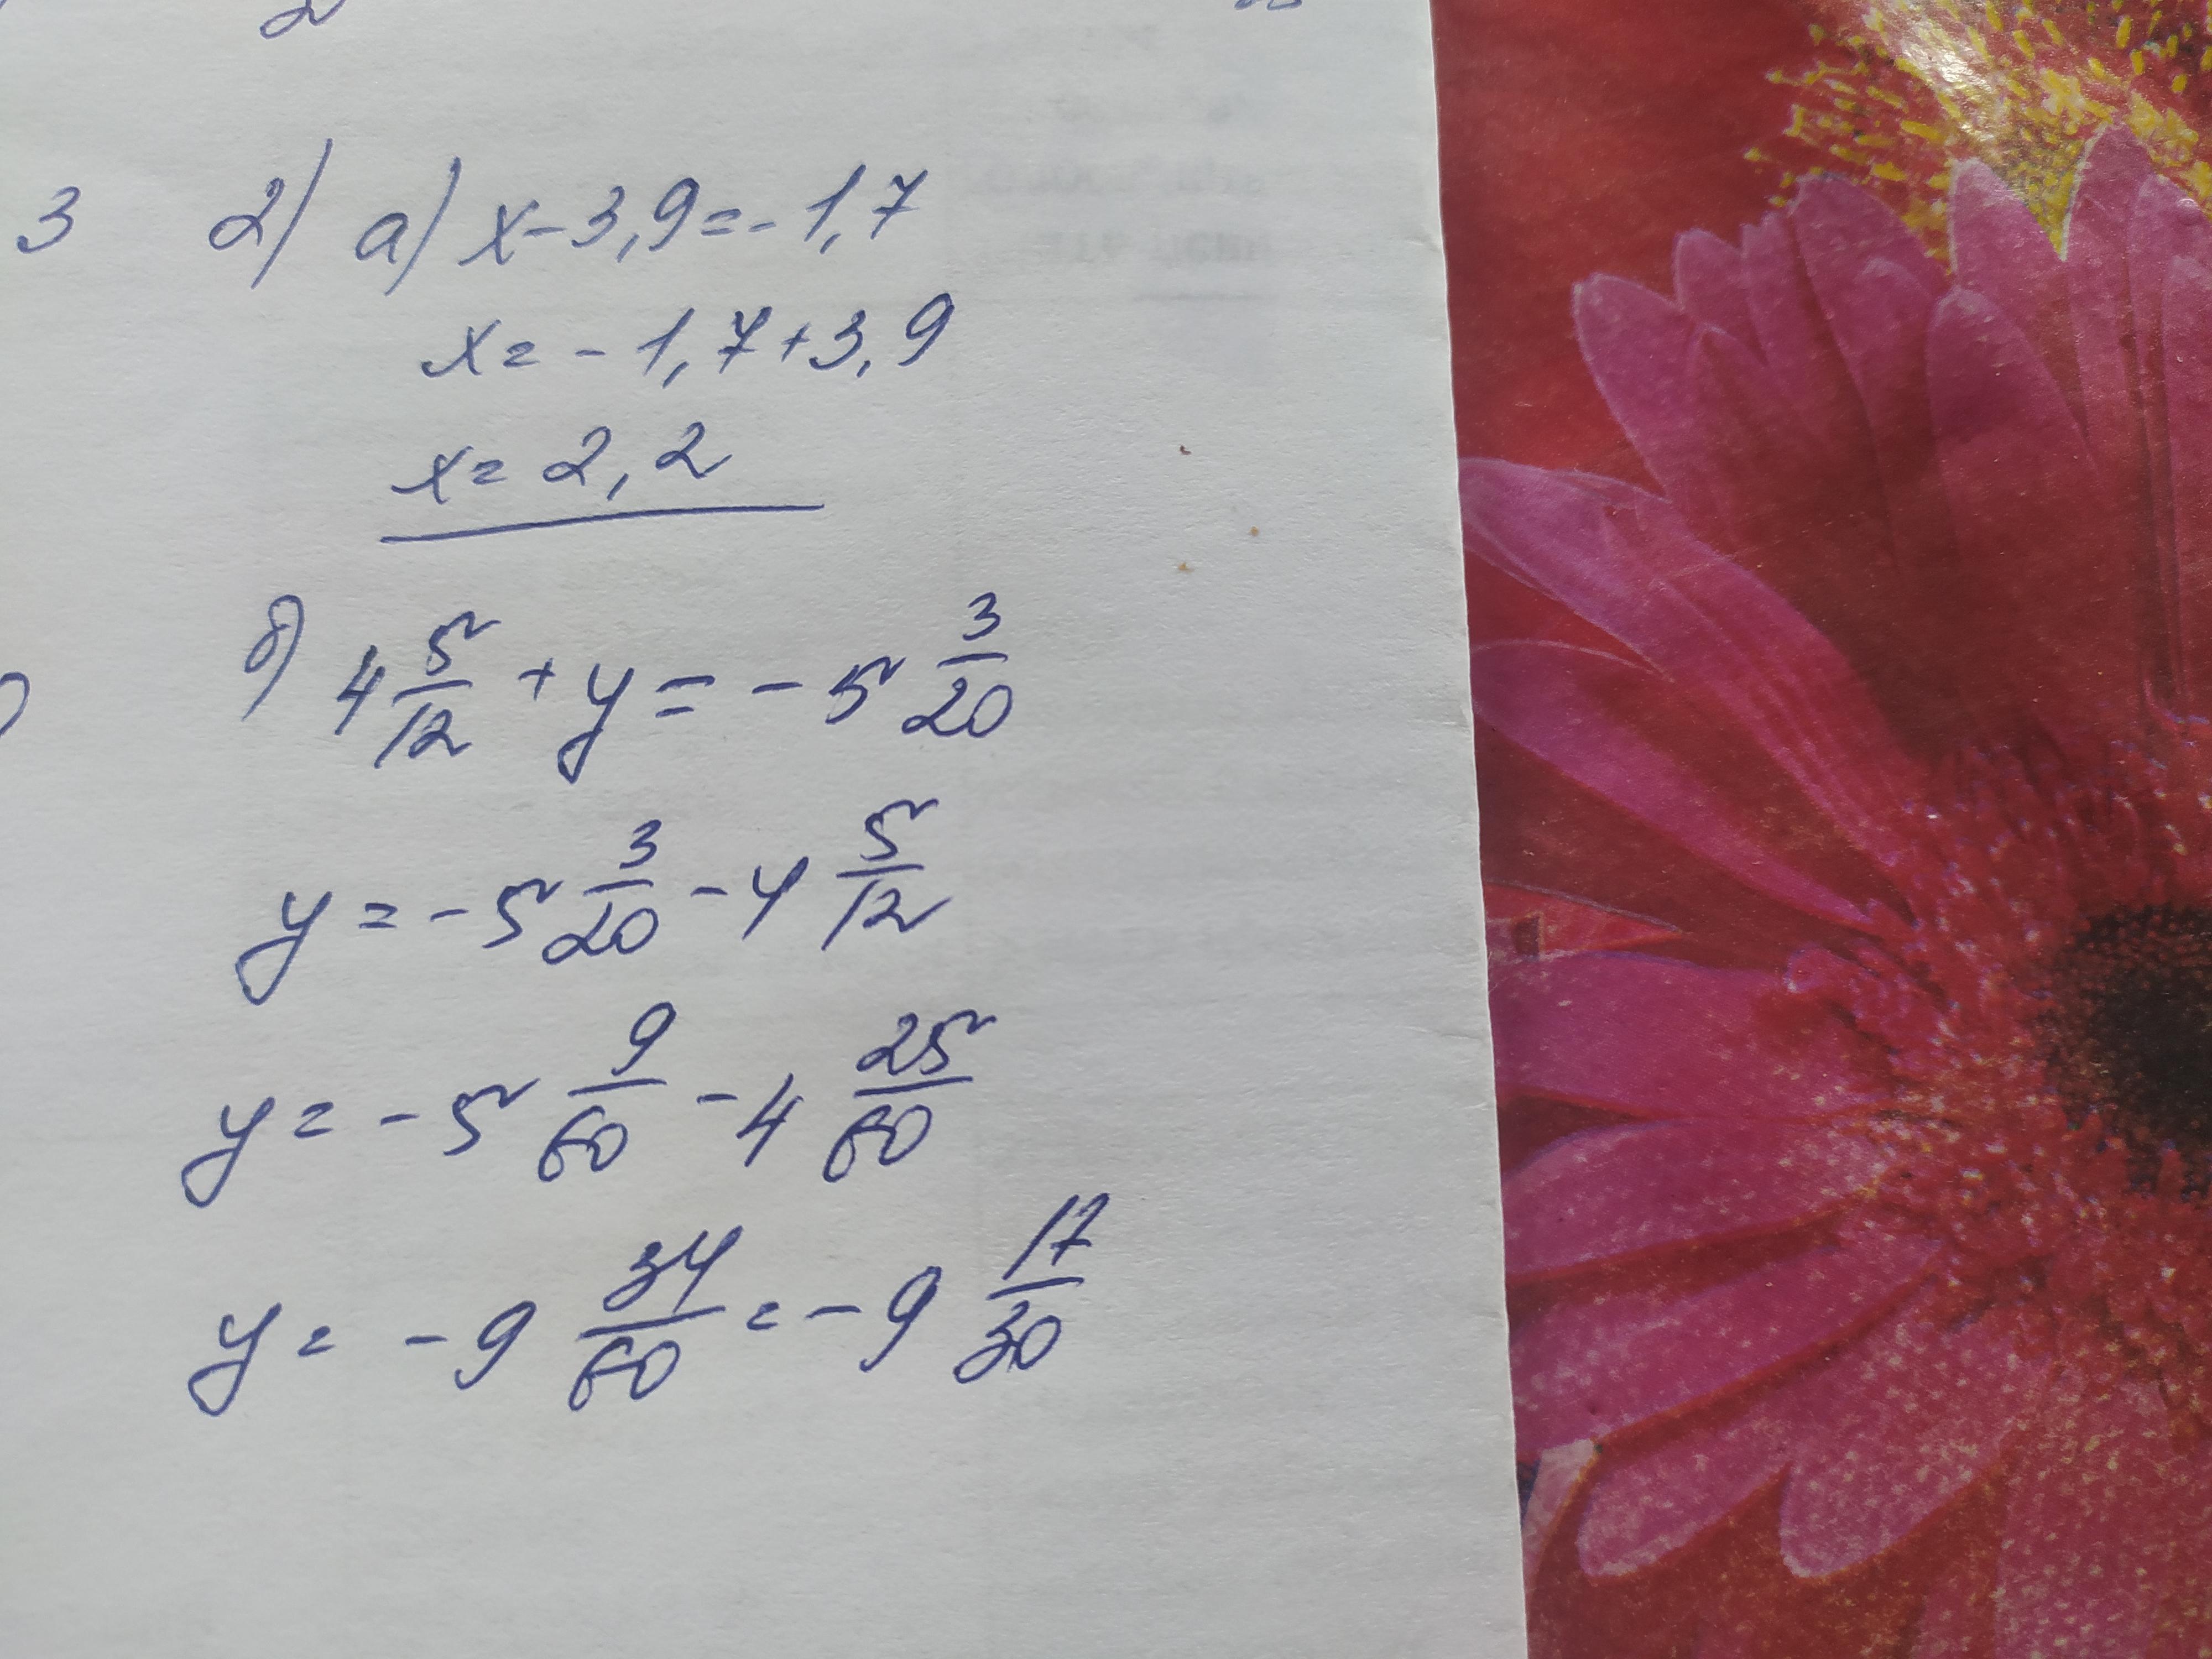 3 2) а) x - 3,9 = - 1,7
x = - 1,7 + 3,9
x = 2,2
б) 4 5/12 + y = - 5 3/20
y = - 5 3/20 - 4 5/12
y = - 5 9/60 - 4 25/60
y = - 9 34/60 = - 9 17/30